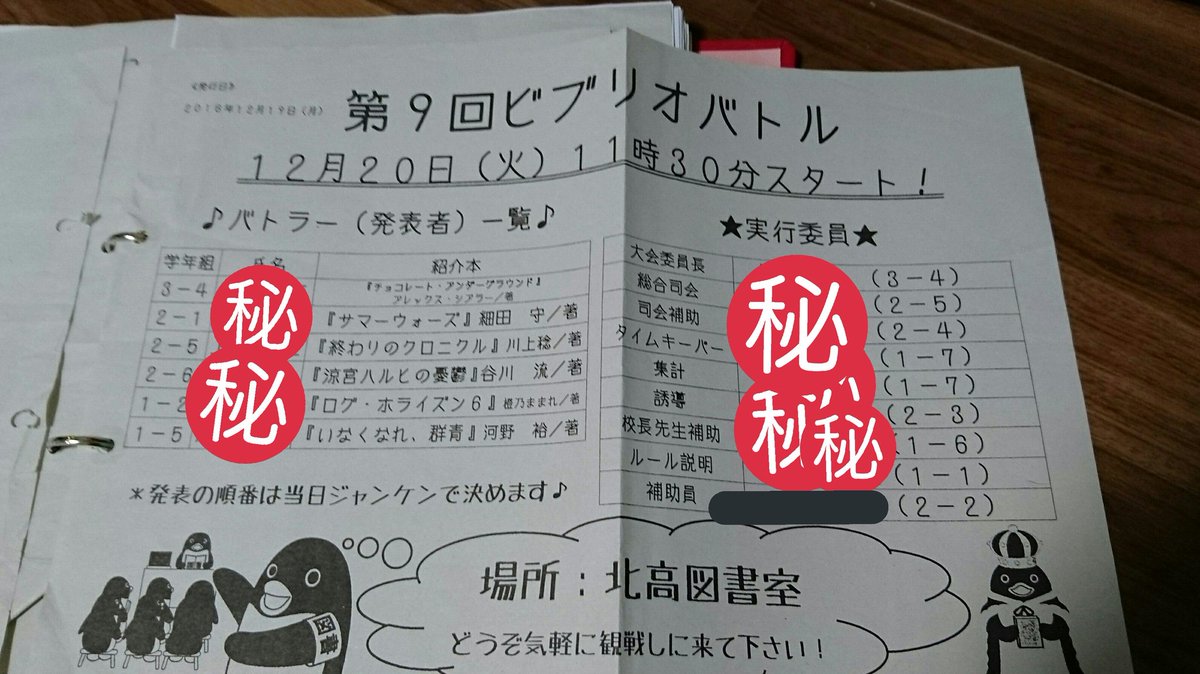 《発行日》
2016年12月19日（月）
第9回ビブリオバトル
12月20日（火）11時30分スタート！
♪バトラー（発表者）一覧♪
学年組 氏名 紹介本
3-4 秘 『チョコレート・アンダーグラウンド』
アレックス・シアラー/著
2-1 『サマーウォーズ』細田 守/著
2-5 『終わりのクロニクル』川上稔/著
2-6 秘 『涼宮ハルヒの憂鬱』谷川 流/著
1-2 『ログ・ホライズン6』橙乃ままれ/著
1-5 『いなくなれ、群青』河野 裕/著
＊発表の順番は当日ジャンケンで決めます♪
★実行委員★
大会委員長 (3-4)
総合司会 秘 (2-5)
司会補助 (2-4)
タイムキーパー (1-7)
集計 (1-7)
誘導 秘 (2-3)
校長先生補助 秘 (1-6)
ルール説明 (1-1)
補助員 (2-2)
図書
場所：北高図書室
どうぞ気軽に観戦しに来て下さい！